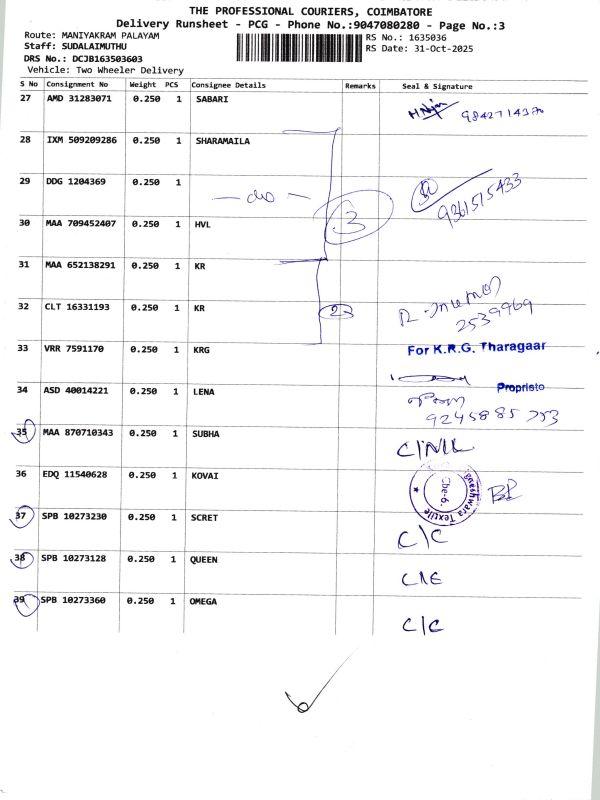 THE PROFESSIONAL COURIERS, COIMBATORE
Delivery Runsheet - PCG - Phone No.:9047080280 - Page No.:3
Route: MANIYAKRAM PALAYAM
RS No.: 1635036
Staff: SUDALAIMUTHU
RS Date: 31-Oct-2025
DRS No.: DCJB163503603
Vehicle: Two Wheeler Delivery
S No Consignment No Weight PCS Consignee Details Remarks Seal & Signature
27 AMD 31283071 0.250 1 SABARI
28 IXM 509209286 0.250 1 SHARAMAILA
29 DDG 1204369 0.250 1 — do — 9361515433
3
30 MAA 709452407 0.250 1 HVL
31 MAA 652138291 0.250 1 KR
32 CLT 16331193 0.250 1 KR 2 2539969
33 VRR 7591170 0.250 1 KRG For K.R.G. Tharagaar
Propristo
34 ASD 40014221 0.250 1 LENA
9245885753
35 MAA 870710343 0.250 1 SUBHA
36 EDQ 11540628 0.250 1 KOVAI Textile Cbe-6.
37 SPB 10273230 0.250 1 SCRET C/C
38 SPB 10273128 0.250 1 QUEEN
39 SPB 10273360 0.250 1 OMEGA C/C